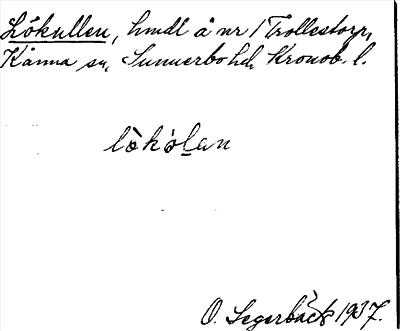 Lökullen, hmdl å nr 1 Trollestorp,
Kånna sn, Sunnerbo hd, Kronob. l.
lò̀kólan
O. Segerbäck 1937.